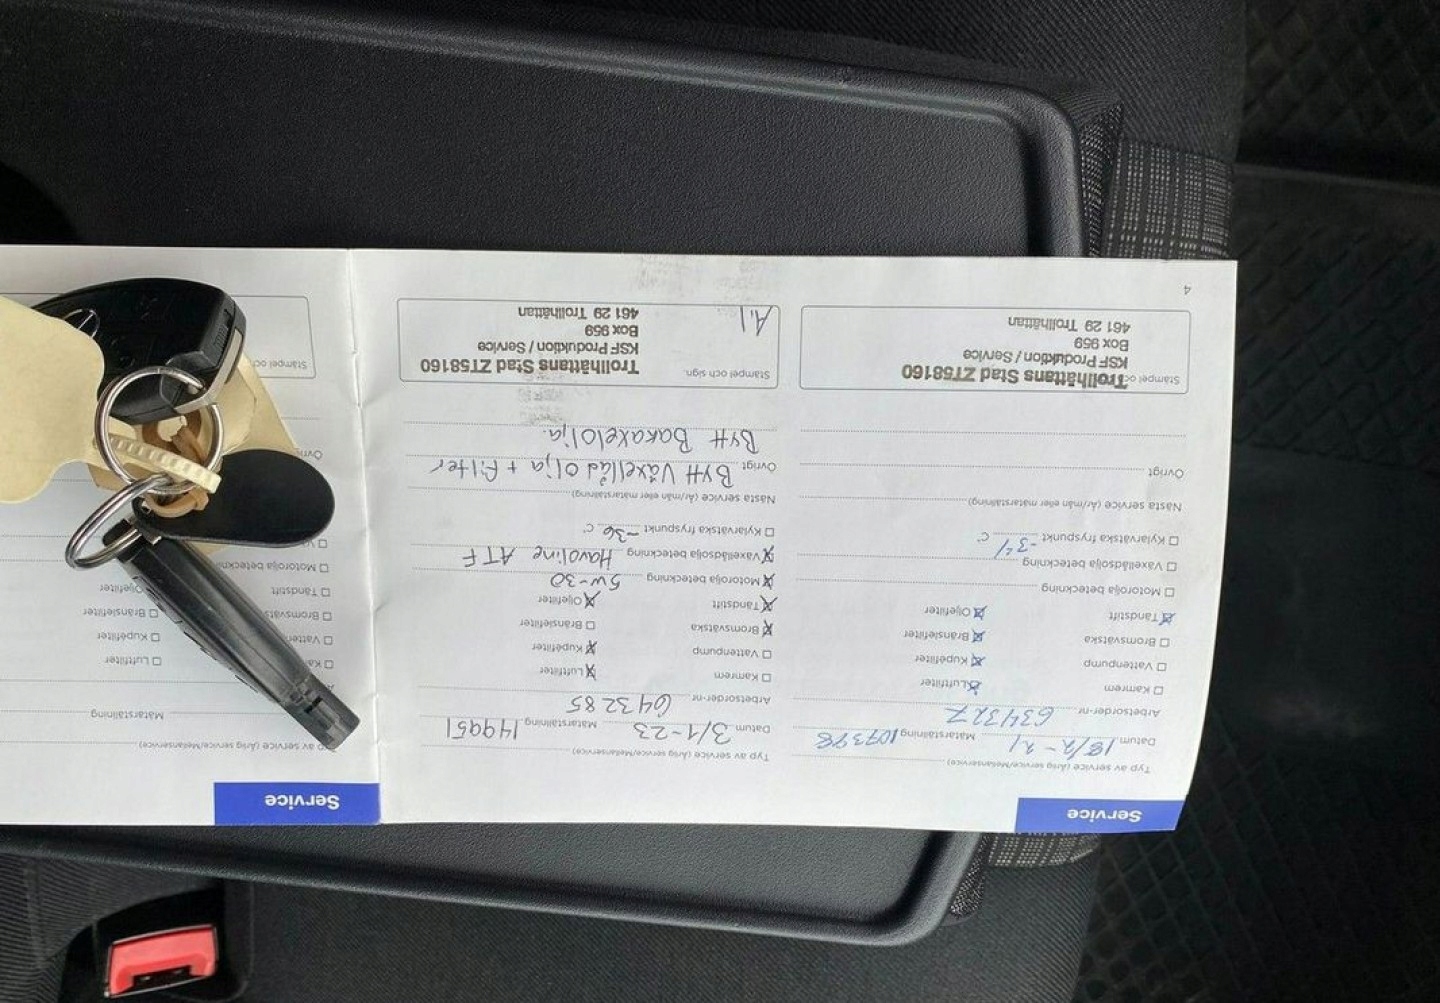 Service
Typ av service (Årlig service/Mellanservice)
Datum 18/2-21 Mätarställning 107398
Arbetsorder-nr 6343327
Kamrem
Luftfilter
Vattenpump
Kupéfilter
Bromsvätska
Bränslefilter
Tändstift
Oljefilter
Motorolja beteckning
Växellådsolja beteckning
Kylarvätska fryspunkt -34 C°
Nästa service (År/mån eller mätarställning)
Övrigt
Stämpel oc
Trollhättans Stad ZT58160
KSF Produktion / Service
Box 959
461 29 Trollhättan
4
Service
Typ av service (Årlig service/Mellanservice)
Datum 3/1-23 Mätarställning 149951
Arbetsorder-nr 643285
Kamrem
Luftfilter
Vattenpump
Kupéfilter
Bromsvätska
Bränslefilter
Tändstift
Oljefilter
Motorolja beteckning 5W-30
Växellådsolja beteckning Havoline ATF
Kylarvätska fryspunkt -36 C°
Nästa service (År/mån eller mätarställning)
Övrigt Bytt Växellåd olja + Filter
Bytt Bakaxelolja.
Stämpel och sign.
Trollhättans Stad ZT58160
KSF Produktion / Service
Box 959
461 29 Trollhättan
Service
av service (Årlig service/Mellanservice)
Mätarställning
Luftfilter
Kupéfilter
Vatten
Bränslefilter
Bromsväts
Oljefilter
Tändstift
Motorolja beteckni
Övri
Stämpel oc